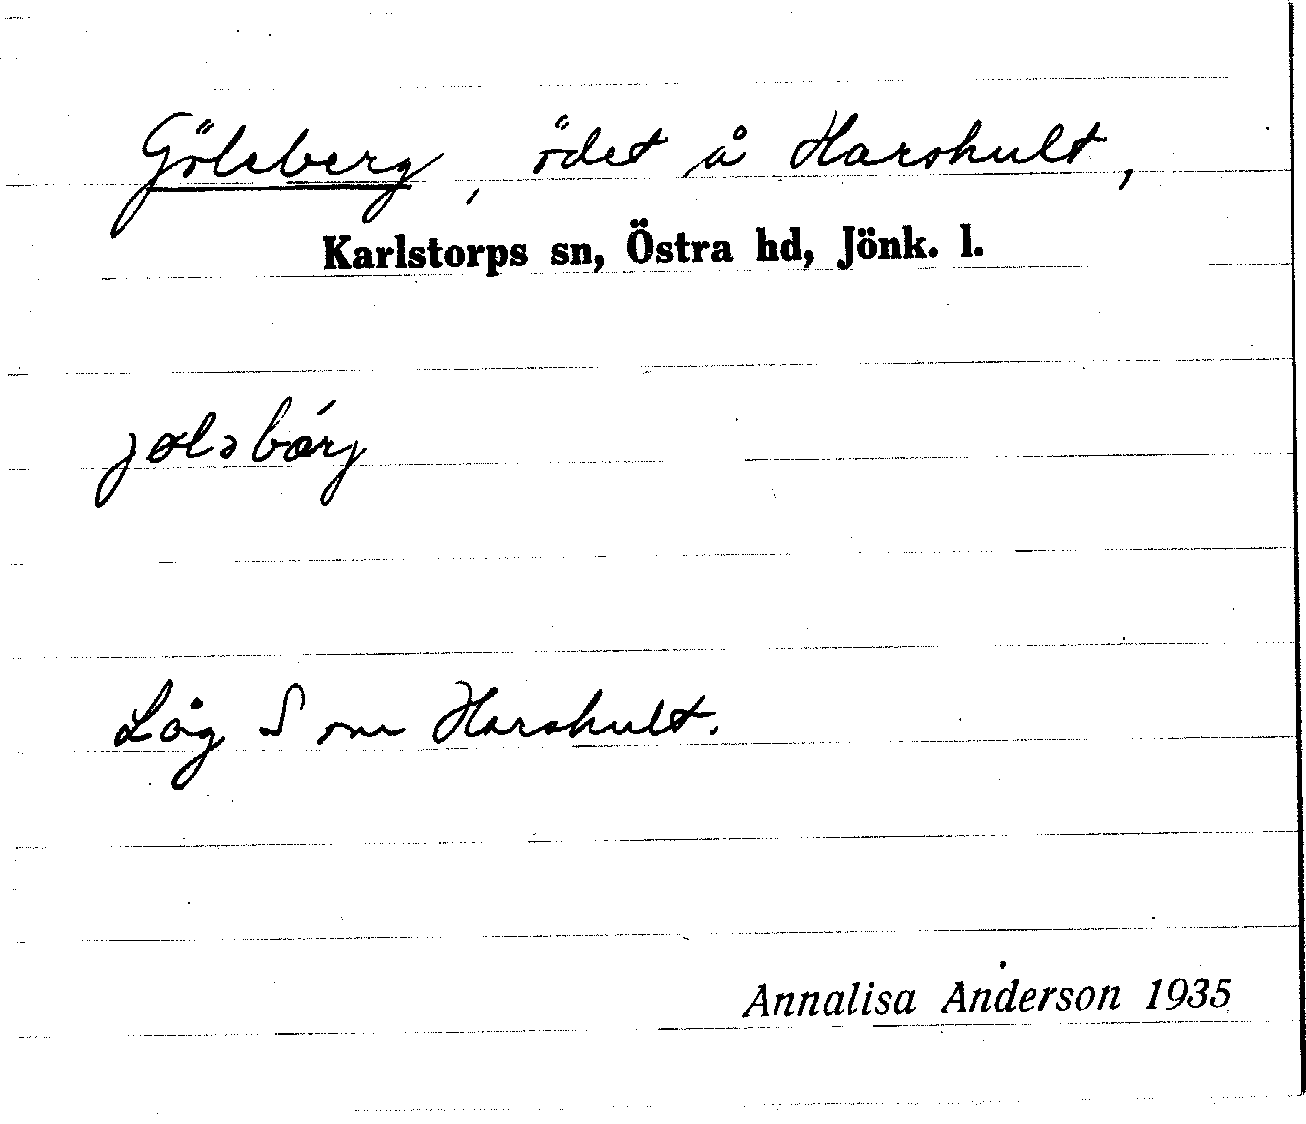 Göleberg, ödet å Harshult,
Karlstorps sn, Östra hd, Jönk. l.
jøləbárj
Låg S om Harshult.
Annalisa Anderson 1935